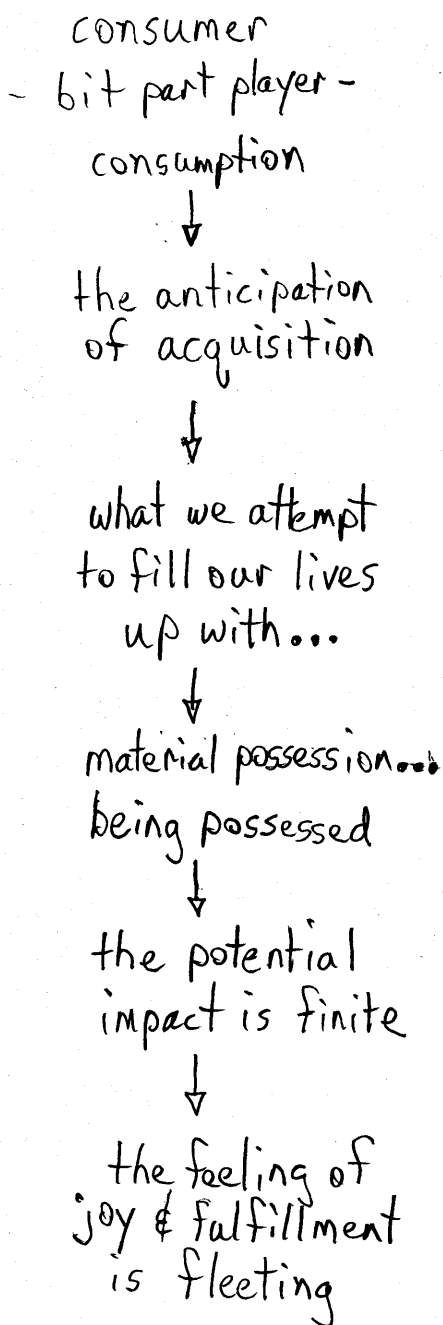 consumer
- bit part player -
consumption
the anticipation
of acquisition
what we attempt
to fill our lives
up with...
material possession...
being possessed
the potential
impact is finite
the feeling of
joy & fulfillment
is fleeting